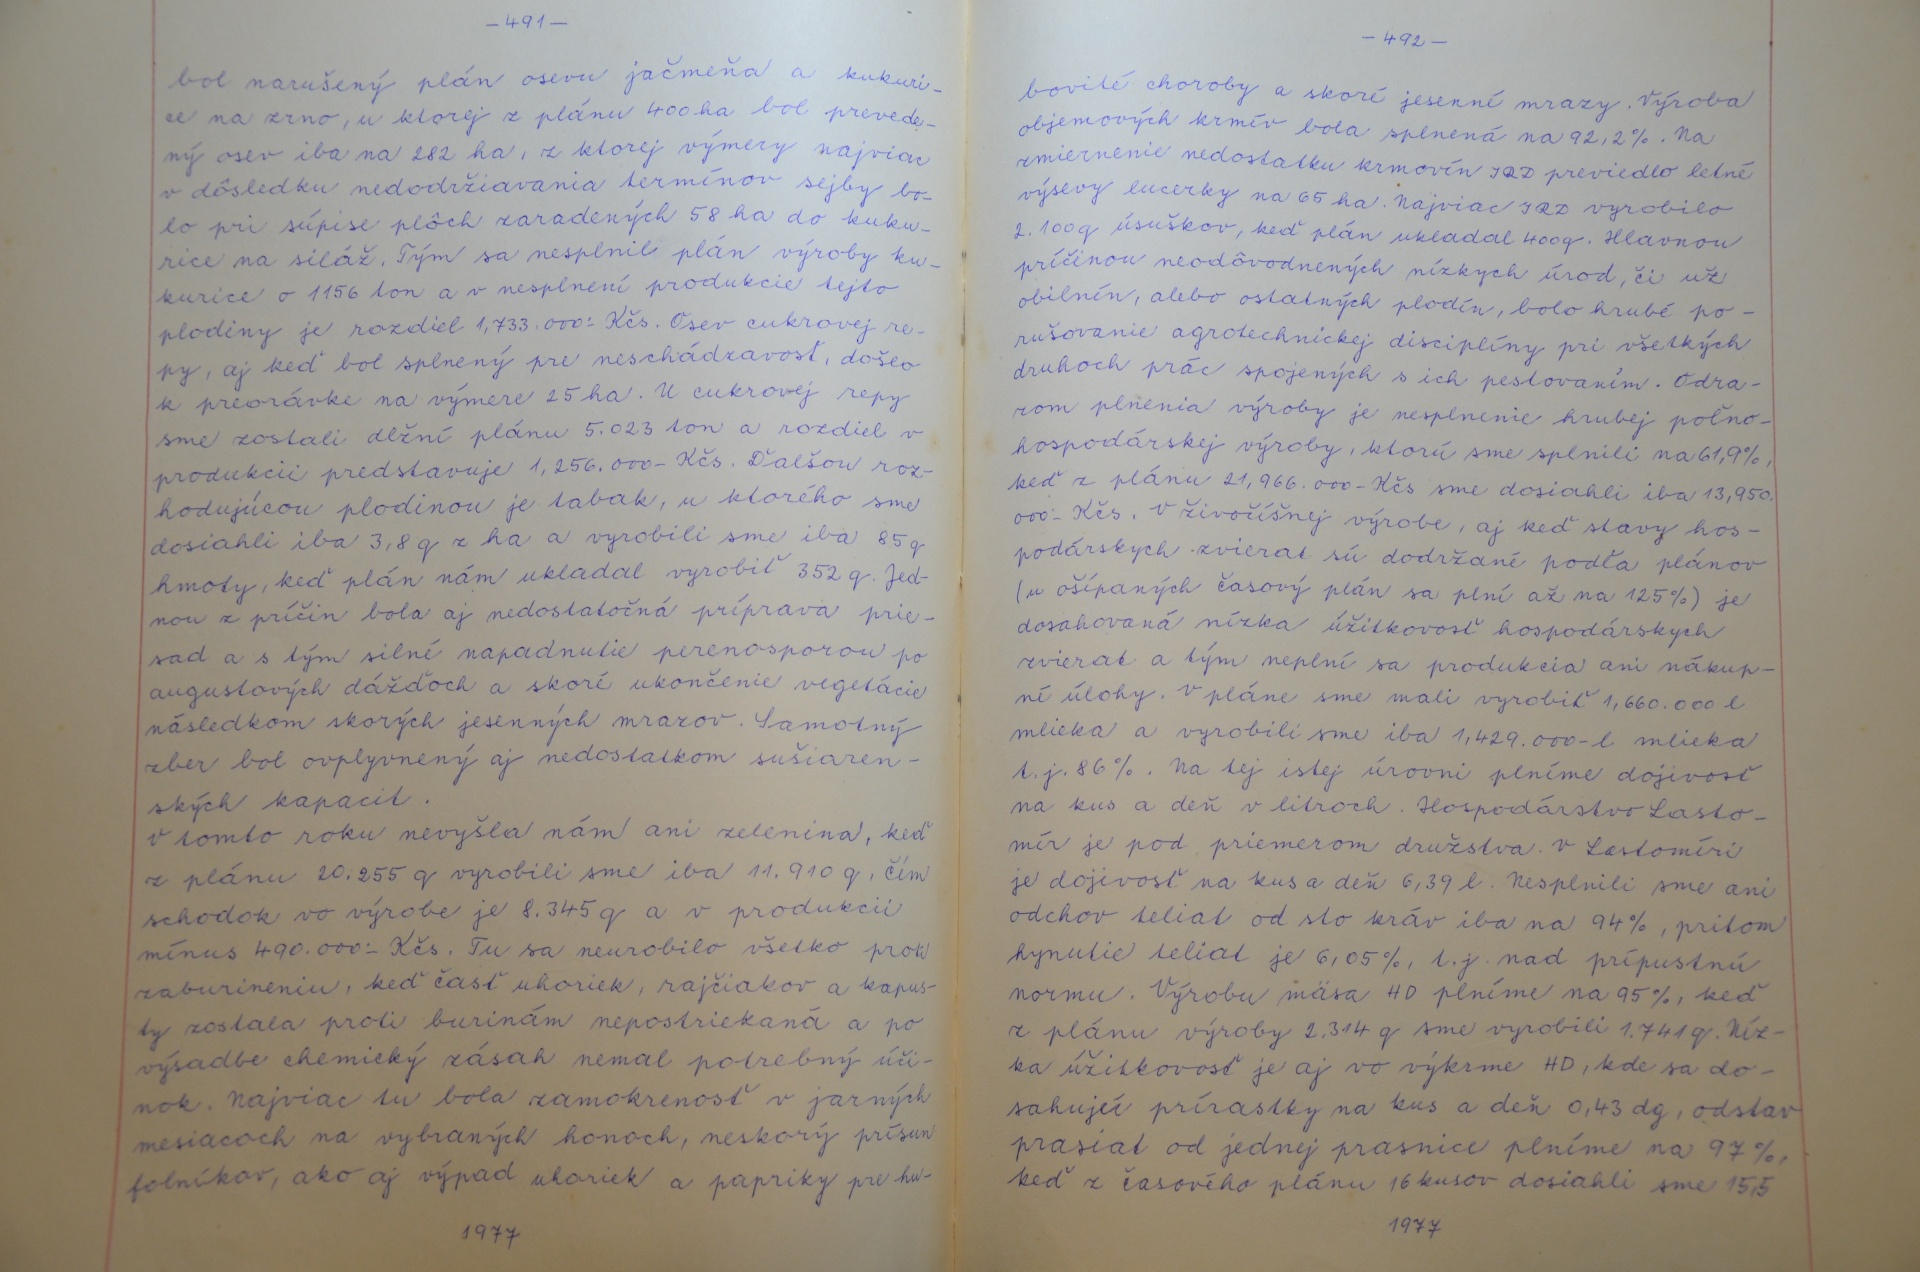 – 491 –
bol narušený plán osevu jačmeňa a kukuri-
ce na zrno, u ktorej z plánu 400 ha bol prevede-
ný osev iba na 282 ha, z ktorej výmery najviac
v dôsledku nedodržiavania termínov sejby bo-
lo pri súpise plôch zaradených 58 ha do kuku-
rice na siláž. Tým sa nesplnil plán výroby ku-
kurice o 1156 ton a v nesplnení produkcie tejto
plodiny je rozdiel 1,733.000.- Kčs. Osev cukrovej re-
py, aj keď bol splnený pre neschádzavosť, došlo
k preorávke na výmere 25 ha. U cukrovej repy
sme zostali dlžní plánu 5.023 ton a rozdiel v
produkcii predstavuje 1,256.000- Kčs. Ďalšou roz-
hodujúcou plodinou je tabak, u ktorého sme
dosiahli iba 3,8 q z ha a vyrobili sme iba 85 q
hmoty, keď plán nám ukladal vyrobiť 352 q. Jed-
nou z príčin bola aj nedostatočná príprava prie-
sad a s tým silné napadnutie perenosporou po
augustových dážďoch a skoré ukončenie vegetácie
následkom skorých jesenných mrazov. Samotný
zber bol ovplyvnený aj nedostatkom sušiaren-
ských kapacit.
V tomto roku nevyšla nám ani zelenina, keď
z plánu 20.255 q vyrobili sme iba 11.910 q, čím
schodok vo výrobe je 8.345 q a v produkcii
mínus 490.000.- Kčs. Tu sa neurobilo všetko proti
zaburineniu, keď časť uhoriek, rajčiakov a kapus-
ty zostala proti burinám nepostriekaná a po
výsadbe chemický zásah nemal potrebný úči-
nok. Najviac tu bola zamokrenosť v jarných
mesiacoch na vybraných honoch, neskorý prísun
folníkov, ako aj výpad uhoriek a papriky pre hu-
1977
– 492 –
bovité choroby a skoré jesenné mrazy. Výroba
objemových krmív bola splnená na 92,2%. Na
zmiernenie nedostatku krmovín JRD previedlo letné
výsevy lucerky na 65 ha. Najviac JRD vyrobilo
2.100 q úsuškov, keď plán ukladal 400 q. Hlavnou
príčinou neodôvodnených nízkych úrod, či už
obilnín, alebo ostatných plodín, bolo hrubé po-
rušovanie agrotechnickej disciplíny pri všetkých
druhoch prác spojených s ich pestovaním. Odra-
zom plnenia výroby je nesplnenie hrubej poľno-
hospodárskej výroby, ktorú sme splnili na 61,9%,
keď z plánu 21,966.000- Kčs sme dosiahli iba 13,950.
000.- Kčs. V živočíšnej výrobe, aj keď stavy hos-
podárskych zvierat sú dodržané podľa plánov
(u ošípaných časový plán sa plní až na 125%) je
dosahovaná nízka úžitkovosť hospodárskych
zvierat a tým neplní sa produkcia ani nákup-
né úlohy. V pláne sme mali vyrobiť 1,660.000 l
mlieka a vyrobili sme iba 1,429.000- l mlieka
t.j. 86%. Na tej istej úrovni plníme dojivosť
na kus a deň v litroch. Hospodárstvo Lasto-
mír je pod priemerom družstva. V Lastomíri
je dojivosť na kus a deň 6,39 l. Nesplnili sme ani
odchov teliat od sto kráv iba na 94%, pritom
hynutie teliat je 6,05%, t.j. nad prípustnú
normu. Výrobu mäsa HD plníme na 95%, keď
z plánu výroby 2.314 q sme vyrobili 1.741 q. Níz-
ka úžitkovosť je aj vo výkrme HD, kde sa do-
sahujeí prírastky na kus a deň 0,43 dg, odstav
prasiat od jednej prasnice plníme na 97%,
keď z časového plánu 16 kusov dosiahli sme 15,5
1977